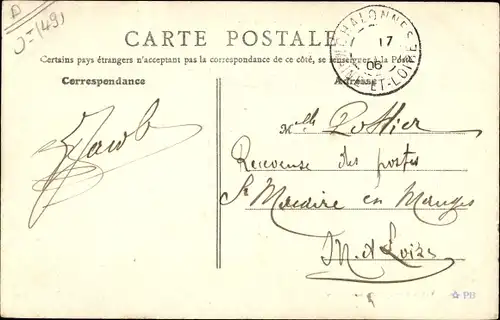 J-(49)
CARTE POSTALE
Certains pays étrangers n'acceptent pas la correspondance de ce côté, se renseigner à la Poste
Correspondance
Adresse
CHALONNES
17
06
ET-LOIRE
Mlle Pottier
Receveuse des postes
St Macaire en Mauges
M. et Loire
PB